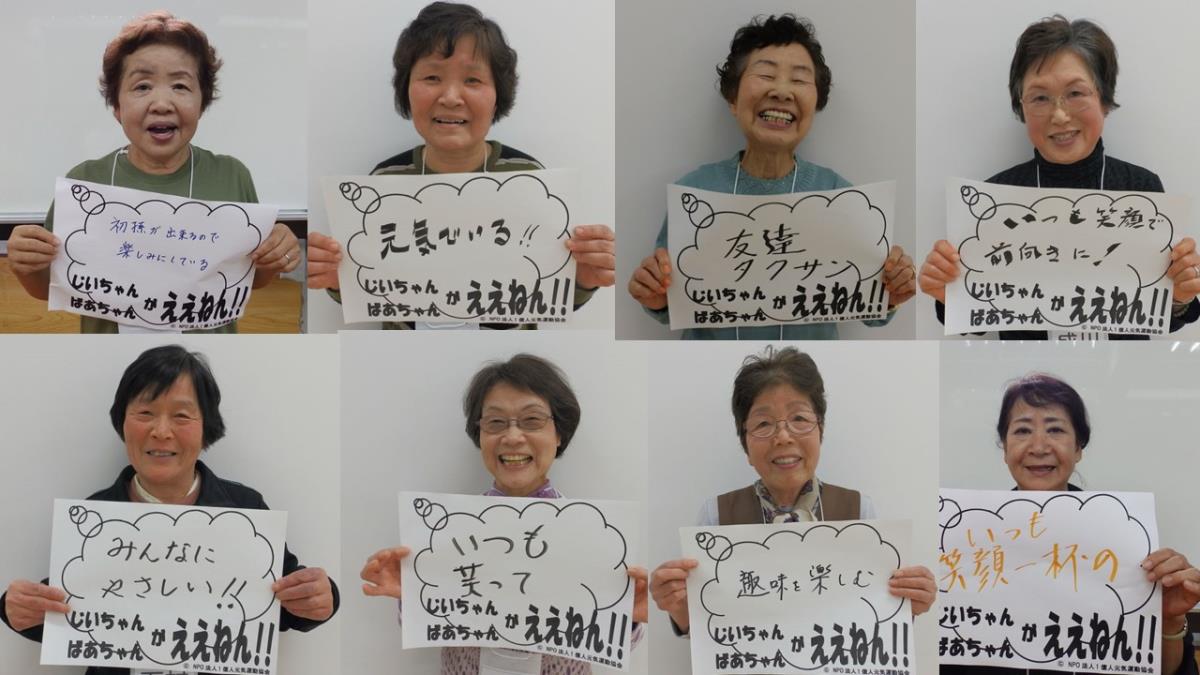 初孫が出来るので
楽しみにしている
じいちゃん
ばあちゃん
が ええねん!!
© NPO法人1億人元気運動協会
元気でいる!!
じいちゃん
ばあちゃん
が ええねん!!
© NPO法人1億人元気運動協会
友達
タクサン
じいちゃん
ばあちゃん
が ええねん!!
© NPO法人1億人元気運動協会
いつも笑顔で
前向きに!
じいちゃん
ばあちゃん
が ええねん!!
© NPO法人1億人元気運動協会
みんなに
やさしい!!
じいちゃん
ばあちゃん
が ええねん!!
© NPO法人1億人元気運動協会
いつも
笑って
じいちゃん
ばあちゃん
が ええねん!!
© NPO法人1億人元気運動協会
趣味を楽しむ
じいちゃん
ばあちゃん
が ええねん!!
© NPO法人1億人元気運動協会
いつも
笑顔一杯の
じいちゃん
ばあちゃん
が ええねん!!
© NPO法人1億人元気運動協会